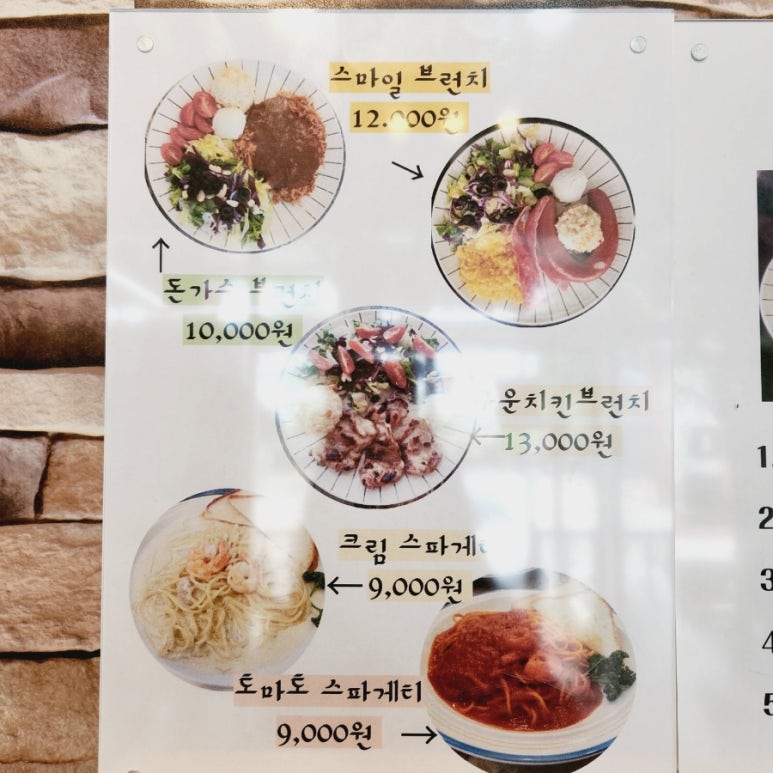 스마일 브런치
12.000원
돈가스 브런치
10,000원
운치킨브런치
13,000원
크림 스파게티
9,000원
토마토 스파게티
9,000원
1.
2
3
4
5